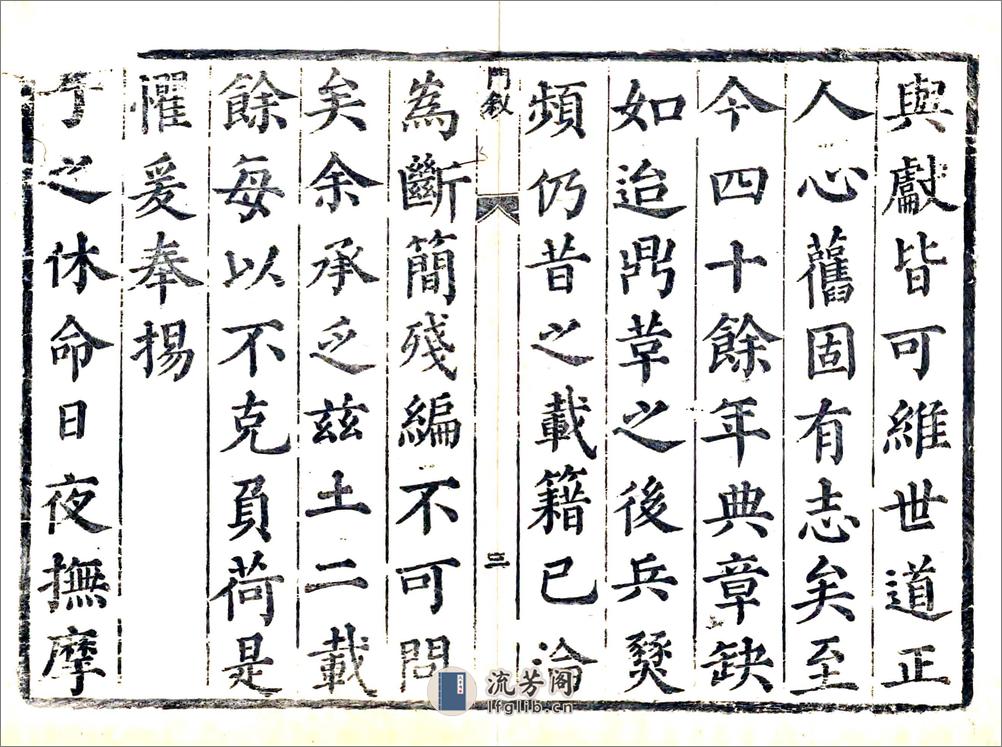 與獻皆可維世道正
人心舊固有志矣至
今四十餘年典章缺
如迨鼎革之後兵燹
頻仍昔之載籍已淪
門敘
三
為斷簡殘編不可問
矣余承乏茲土二載
餘每以不克負荷是
懼爰奉揚
于之休命日夜撫摩
流芳阁
lfglib.cn